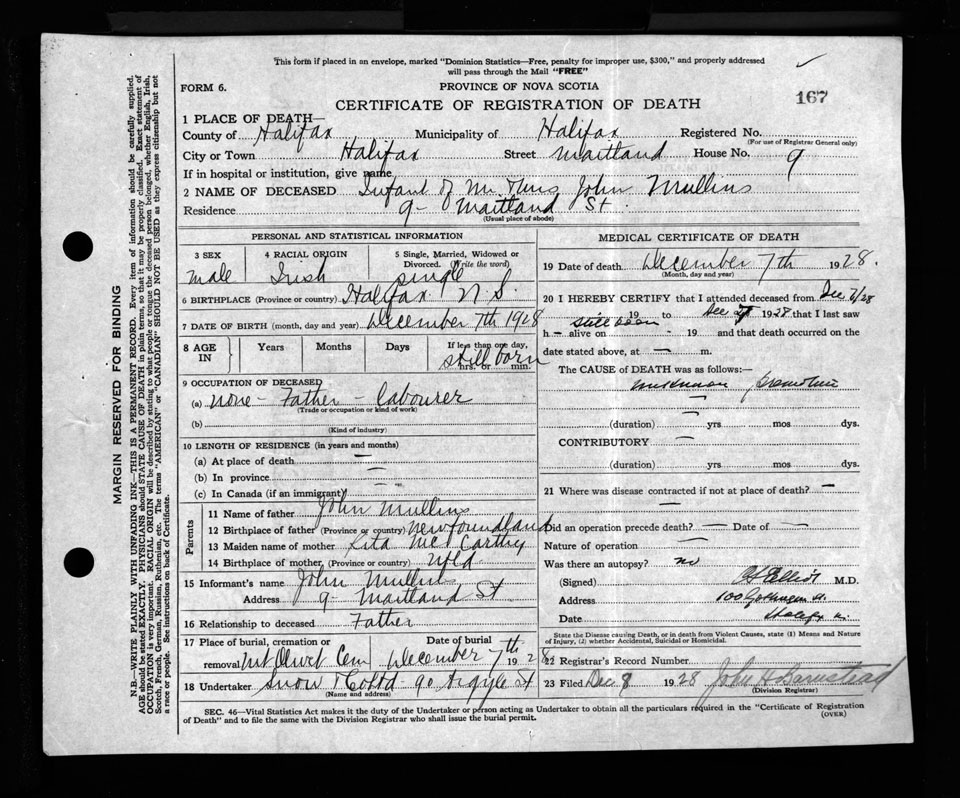 This form if placed in an envelope, marked "Dominion Statistics—Free, penalty for improper use, $300," and properly addressed
will pass through the Mail "FREE"
FORM 6.
PROVINCE OF NOVA SCOTIA
CERTIFICATE OF REGISTRATION OF DEATH
167
1 PLACE OF DEATH—
County of Halifax Municipality of Halifax Registered No.
(For use of Registrar General only)
City or Town Halifax Street Maitland House No. 9
If in hospital or institution, give name
2 NAME OF DECEASED Infant of Mr. & Mrs John Mullins
Residence 9 - Maitland St.
(Usual place of abode)
PERSONAL AND STATISTICAL INFORMATION
3 SEX 4 RACIAL ORIGIN 5 Single, Married, Widowed or
Divorced. (Write the word)
Male Irish single
6 BIRTHPLACE (Province or country) Halifax N.S.
7 DATE OF BIRTH (month, day and year) December 7th 1928
8 AGE IN Years Months Days If less than one day,
still born
hrs. or min.
9 OCCUPATION OF DECEASED
(a) none - Father - labourer
(Trade or occupation or kind of work)
(b)
(Kind of industry)
10 LENGTH OF RESIDENCE (in years and months)
(a) At place of death —
(b) In province —
(c) In Canada (if an immigrant) —
Parents
11 Name of father John Mullins
12 Birthplace of father (Province or country) Newfoundland
13 Maiden name of mother Rita McCarthy
14 Birthplace of mother (Province or country) Nfld
15 Informant's name John Mullins
Address 9 - Maitland St
16 Relationship to deceased Father
17 Place of burial, cremation or Date of burial
removal Mt Olivet Cem December 7th 1928
18 Undertaker Snow & Co Ltd 90 Argyle St
(Name and address)
MEDICAL CERTIFICATE OF DEATH
19 Date of death December 7th 1928.
(Month, day and year)
20 I HEREBY CERTIFY that I attended deceased from Dec 7/28
still born 19 to Dec 7 1928 that I last saw
h — alive on - 19 and that death occurred on the
date stated above, at — m.
The CAUSE of DEATH was as follows:—
unknown
—
(duration) yrs mos dys.
CONTRIBUTORY —
(duration) yrs. mos. dys.
21 Where was disease contracted if not at place of death? —
Did an operation precede death? — Date of —
Nature of operation —
Was there an autopsy? no
(Signed) M.D.
Address 100 Gottingen St.
Date
State the Disease causing Death, or in death from Violent Causes, state (1) Means and Nature
of Injury, (2) whether Accidental, Suicidal or Homicidal.
22 Registrar's Record Number
23 Filed Dec 8 1928 John H Barnstead
(Division Registrar)
SEC. 46—Vital Statistics Act makes it the duty of the Undertaker or person acting as Undertaker to obtain all the particulars required in the "Certificate of Registration
of Death" and to file the same with the Division Registrar who shall issue the burial permit.
(OVER)
MARGIN RESERVED FOR BINDING
N.B.—WRITE PLAINLY WITH UNFADING INK—THIS IS A PERMANENT RECORD. Every item of information should be carefully supplied.
AGE should be stated EXACTLY. PHYSICIANS should STATE CAUSE OF DEATH in plain terms, so that it may be properly classified. Exact statement of
OCCUPATION is very important. RACIAL ORIGIN will be described by stating to what people or tongue the deceased person belonged, whether English, Irish,
Scotch, French, German, Russian, Ruthenian, etc. The terms "AMERICAN" or "CANADIAN" SHOULD NOT BE USED as they express citizenship but not
a race or people. See instructions on back of Certificate.